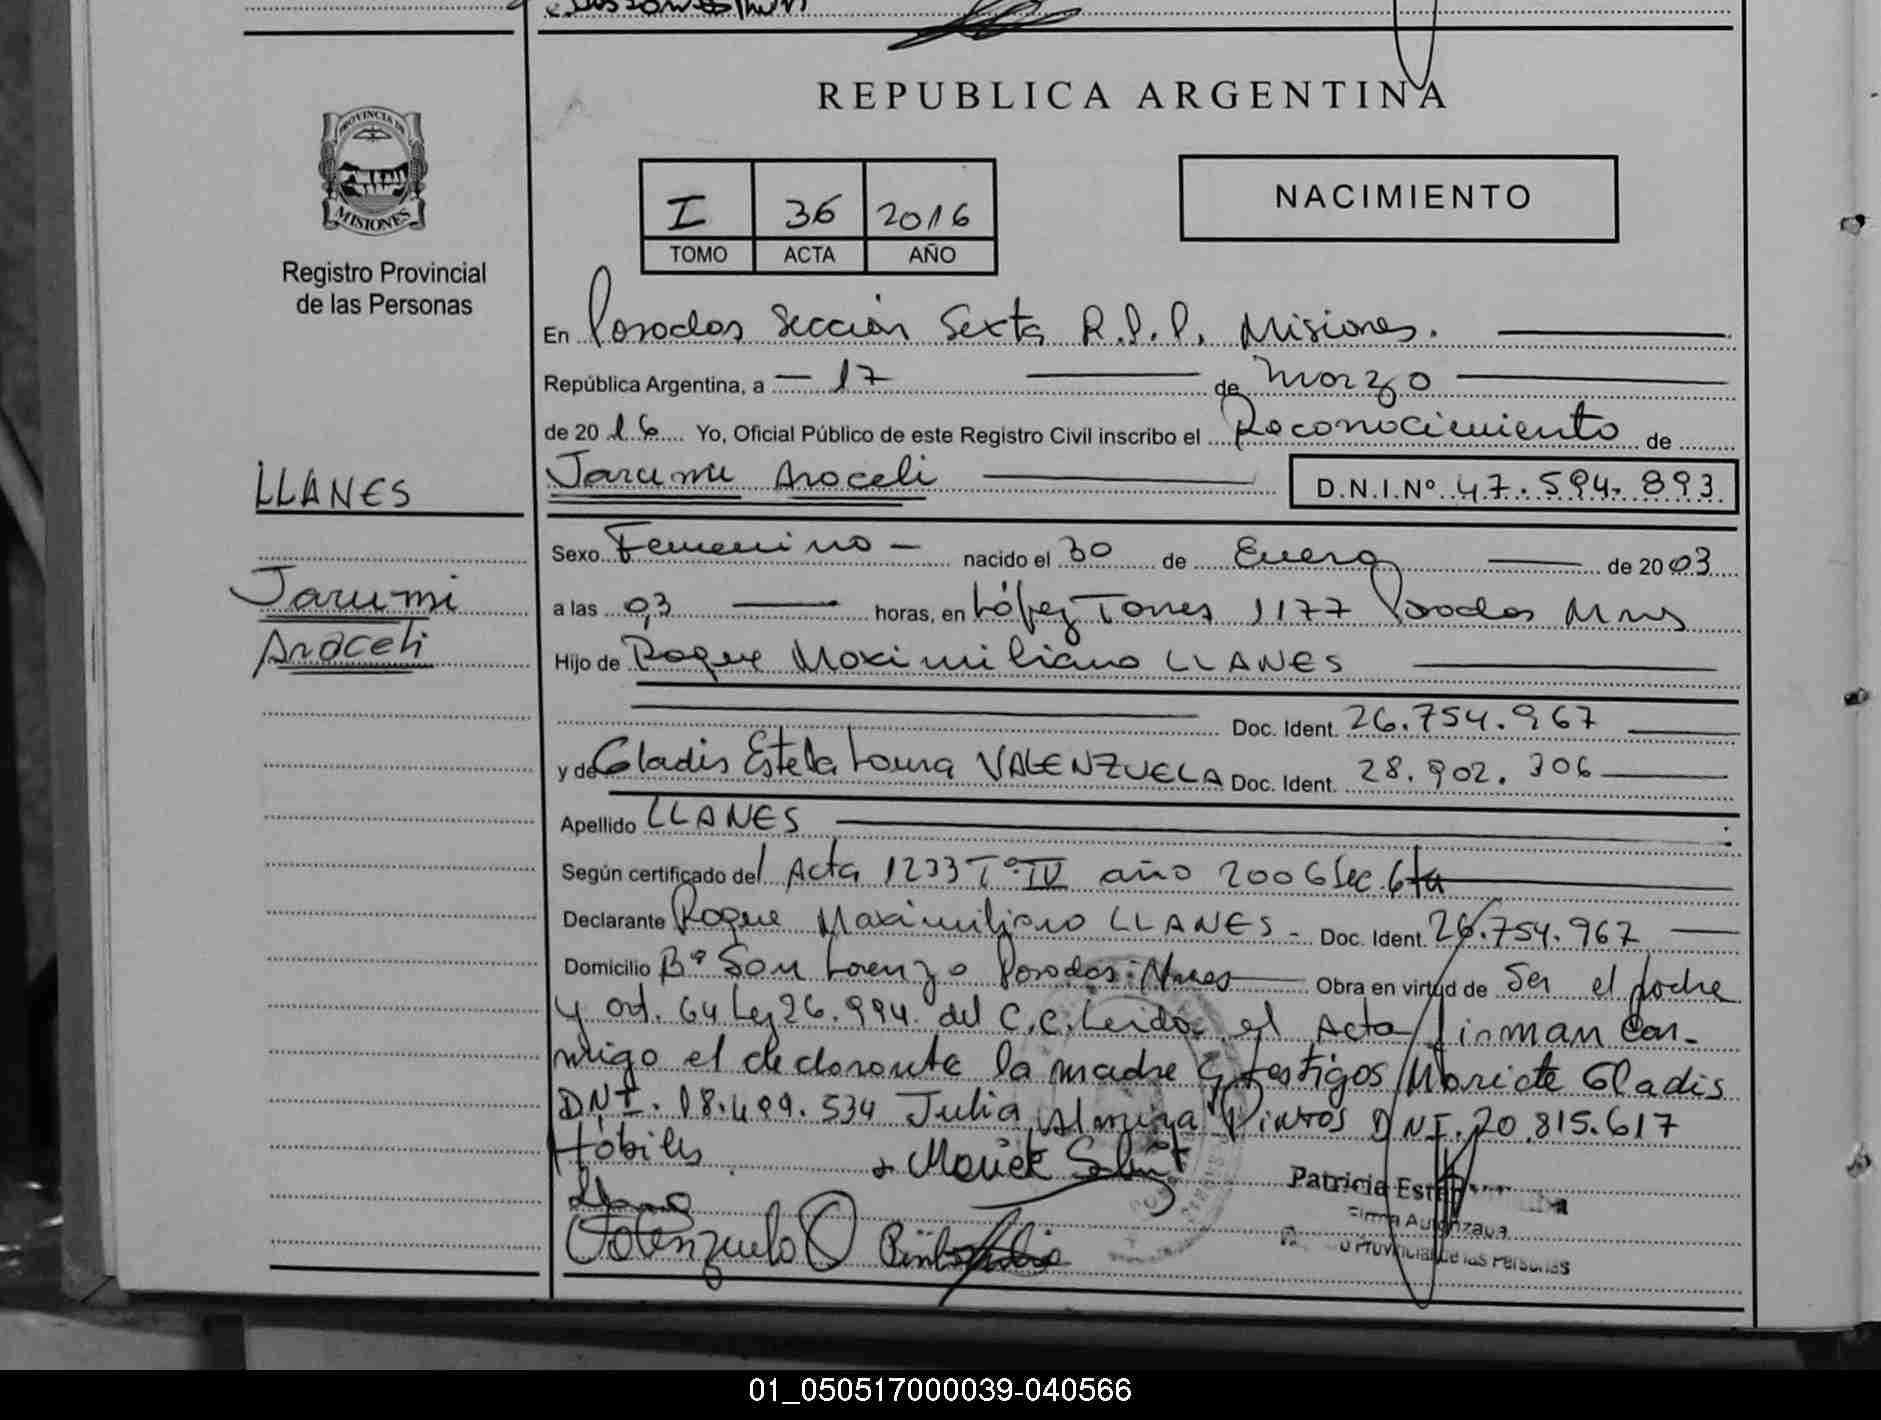 REPUBLICA ARGENTINA
PROVINCIA DE
MISIONES
Registro Provincial
de las Personas
NACIMIENTO
I 36 2016
TOMO ACTA AÑO
En Posadas Sección Sexta R.P.P. Misiones.
República Argentina, a 17 de Marzo
de 2016 Yo, Oficial Público de este Registro Civil inscribo el Reconocimiento de
LLANES
Jarumi Araceli D.N.I.Nº 47.594.893
Sexo Femenino nacido el 30 de Enero de 2003
Jarumi
Araceli
a las 03 horas, en López Torres 1177 Posadas Mnes
Hijo de Roque Maximiliano LLANES
Doc. Ident. 26.754.967
y de Gladis Estela Laura VALENZUELA Doc. Ident. 28.902.306
Apellido LLANES
Según certificado del Acta 1233 Tº IV año 2006 Sec. 6ta
Declarante Roque Maximiliano LLANES - Doc. Ident. 26.754.967
Domicilio Bº San Lorenzo Posadas Mnes Obra en virtud de Ser el padre
y art. 64 Ley 26.994 del C.C. Leida el Acta firman con-
migo el declarante la madre y testigos Mariete Gladis
DNI. 18.499.534 Julia Pintos DNI. 20.815.617
Hábiles
Llanes
Valenzuela
Patricia
Firma Autorizada
Provincial de las Personas
01_050517000039-040566